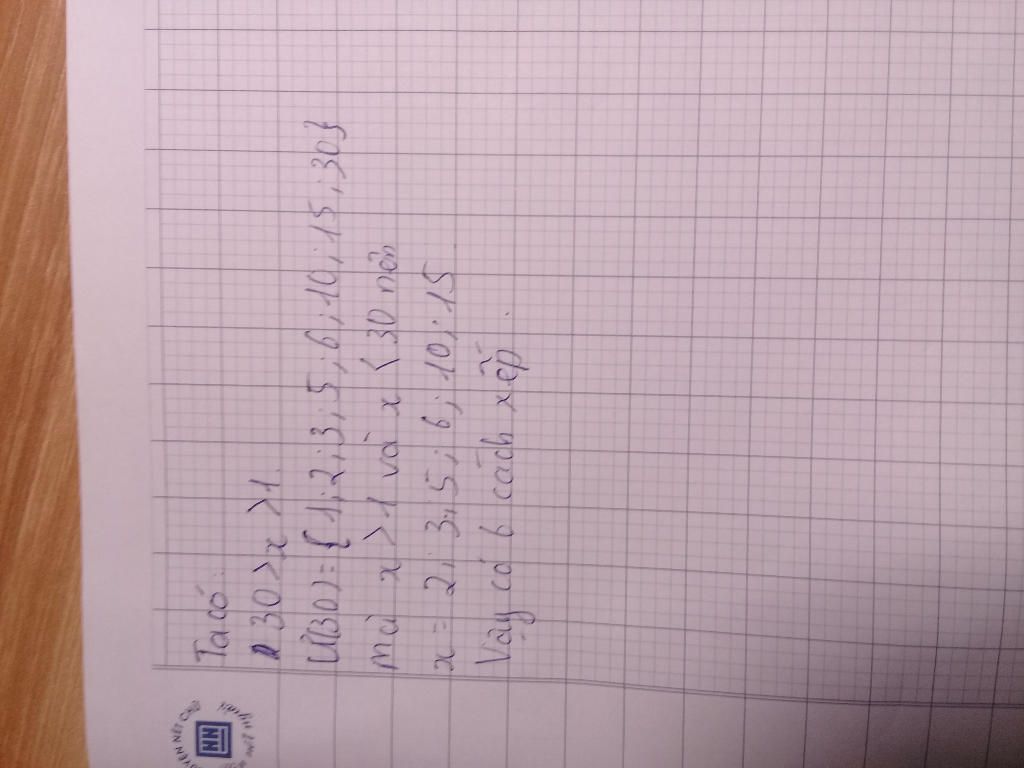 Ta có:
30 > x > 1
Ư(30) = { 1 ; 2 ; 3 ; 5 ; 6 ; 10 ; 15 ; 30}
mà x > 1 và x < 30 nên
x = 2 ; 3 ; 5 ; 6 ; 10 ; 15
Vậy có 6 cách xếp.
NN